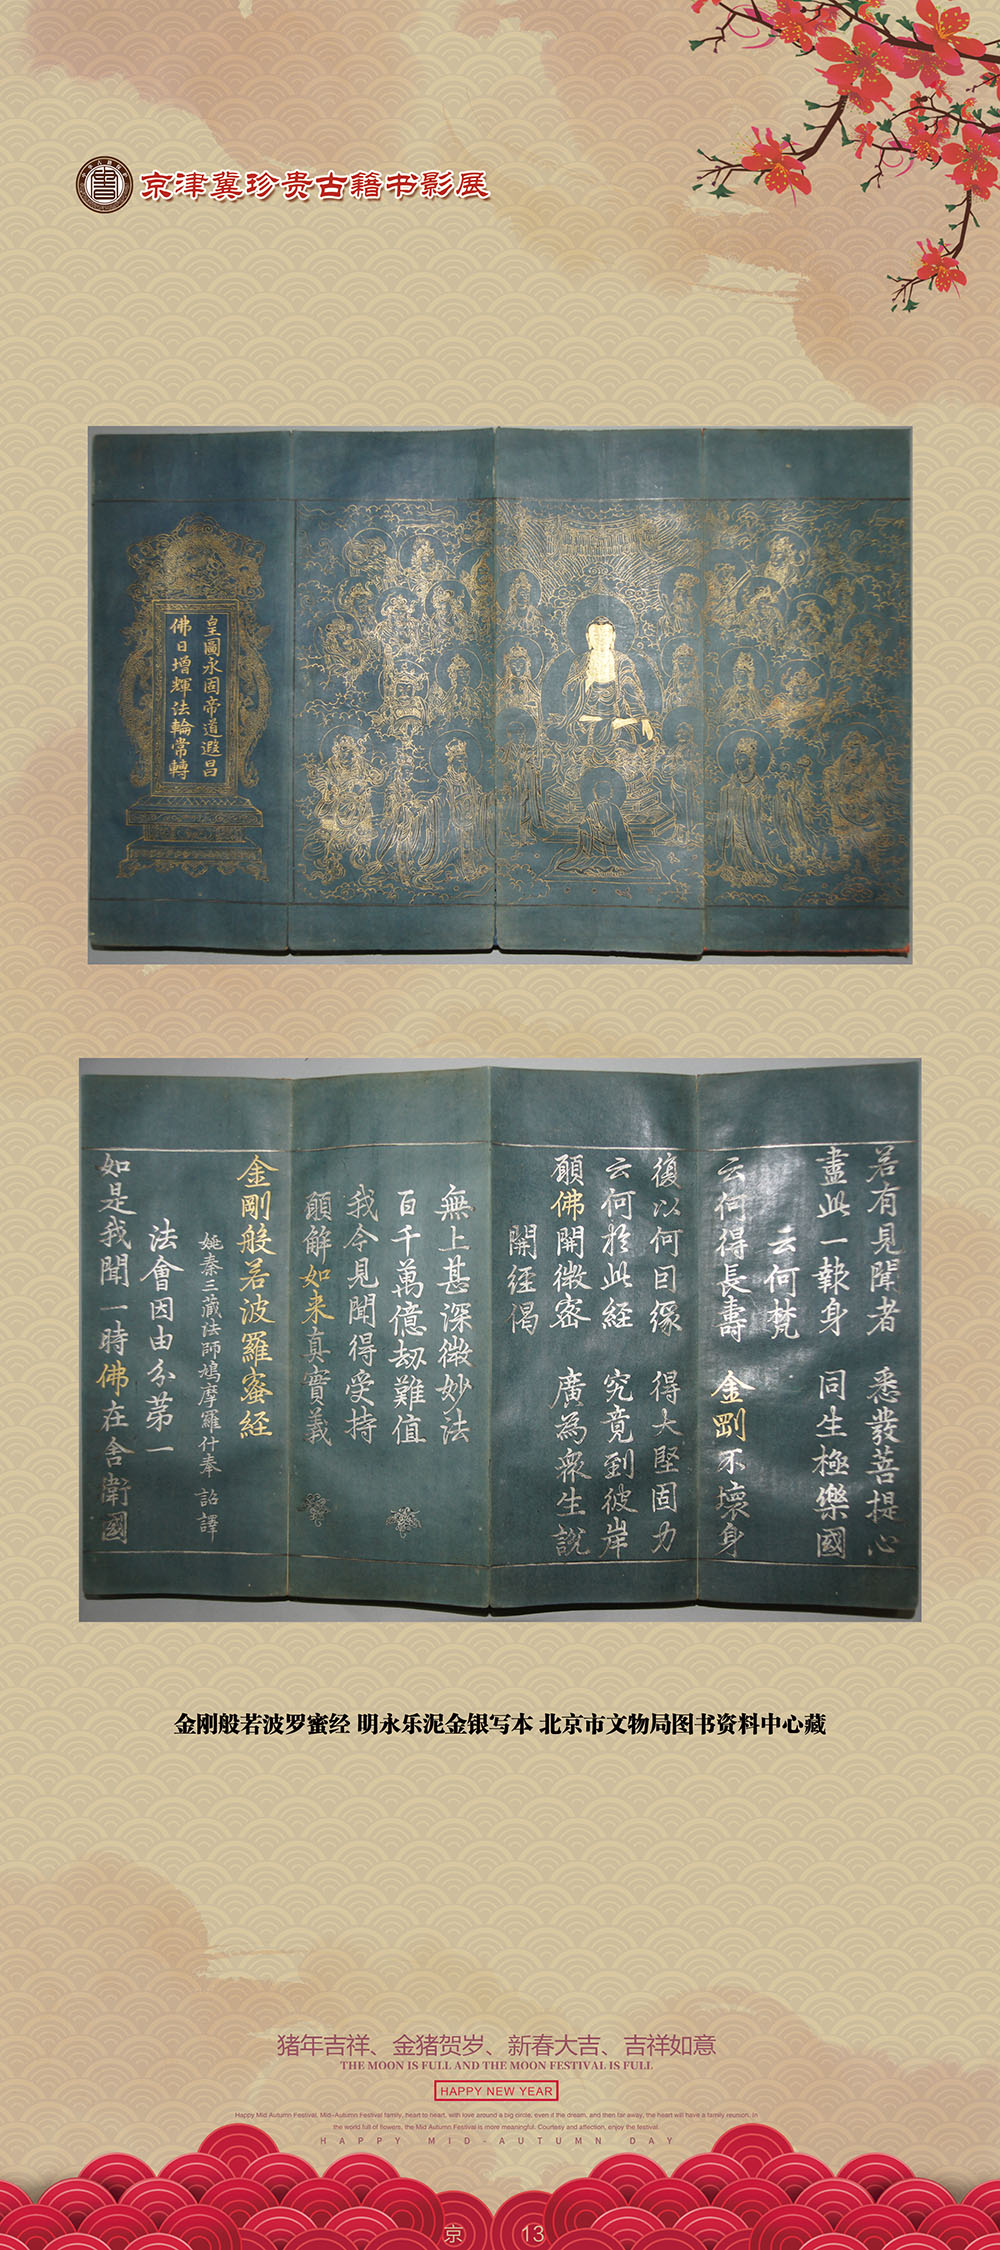 京津冀珍贵古籍书影展
皇圖永固帝道遐昌
佛日增輝法輪常轉
若有見聞者　悉發菩提心
盡此一報身　同生極樂國
云何梵
云何得長壽　金剛不壞身
復以何因緣　得大堅固力
云何於此経　究竟到彼岸
願佛開微密　廣為衆生說
開経偈
無上甚深微妙法
百千萬億劫難值
我今見聞得受持
願解如来真實義
金剛般若波羅蜜経
姚秦三藏法師鳩摩羅什奉 詔譯
法會因由分苐一
如是我聞一時佛在舍衛國
金刚般若波罗蜜经 明永乐泥金银写本 北京市文物局图书资料中心藏
猪年吉祥、金猪贺岁、新春大吉、吉祥如意
THE MOON IS FULL AND THE MOON FESTIVAL IS FULL
HAPPY NEW YEAR
Happy Mid Autumn Festival, Mid-Autumn Festival family, heart to heart, with love around a big circle, even if the dream, and then far away, the heart will have a family reunion. In
the world full of flowers, the Mid Autumn Festival is more meaningful. Courtesy and affection, enjoy the festival.
HAPPY MID-AUTUMN DAY
京 13